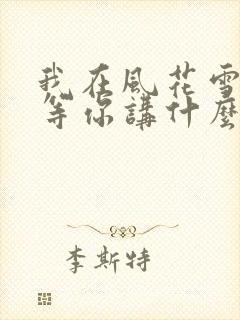 我在風花雪
等你講什麼
李斯特